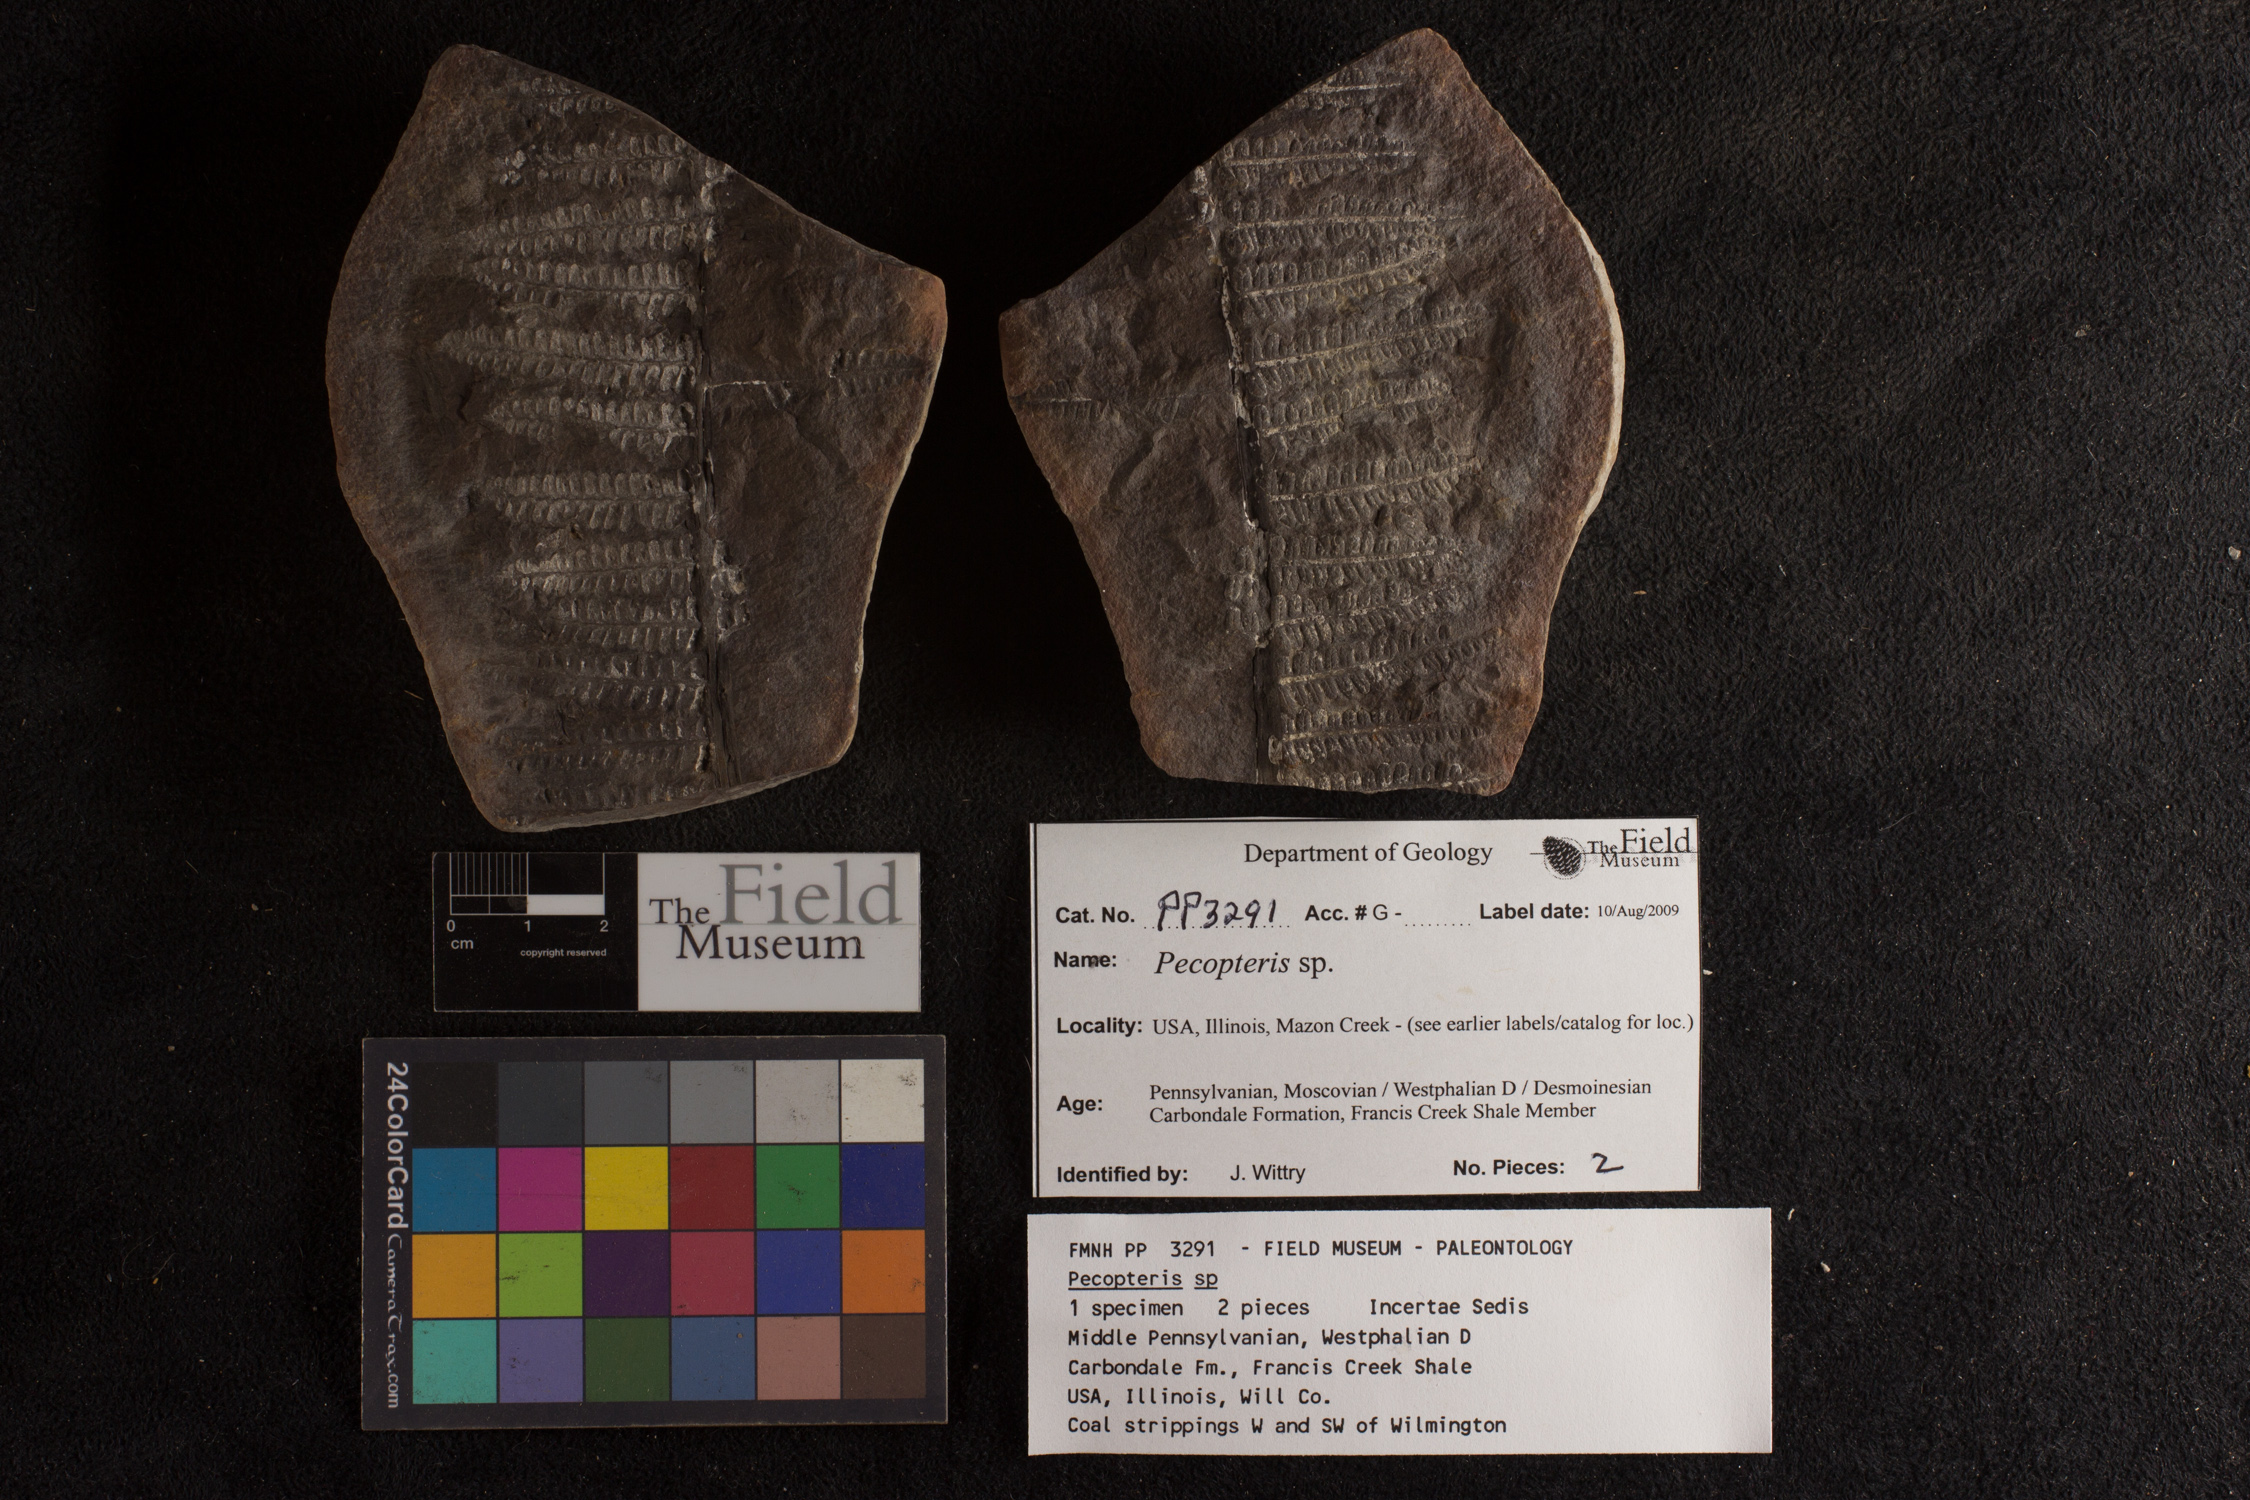 0 1 2
cm
copyright reserved
The Field
Museum
24ColorCard CameraTrax.com
Department of Geology
The Field
Museum
Cat. No. PP3291 Acc. # G - ......... Label date: 10/Aug/2009
Name: Pecopteris sp.
Locality: USA, Illinois, Mazon Creek - (see earlier labels/catalog for loc.)
Age: Pennsylvanian, Moscovian / Westphalian D / Desmoinesian
Carbondale Formation, Francis Creek Shale Member
Identified by: J. Wittry No. Pieces: 2
FMNH PP 3291 - FIELD MUSEUM - PALEONTOLOGY
Pecopteris sp
1 specimen 2 pieces Incertae Sedis
Middle Pennsylvanian, Westphalian D
Carbondale Fm., Francis Creek Shale
USA, Illinois, Will Co.
Coal strippings W and SW of Wilmington